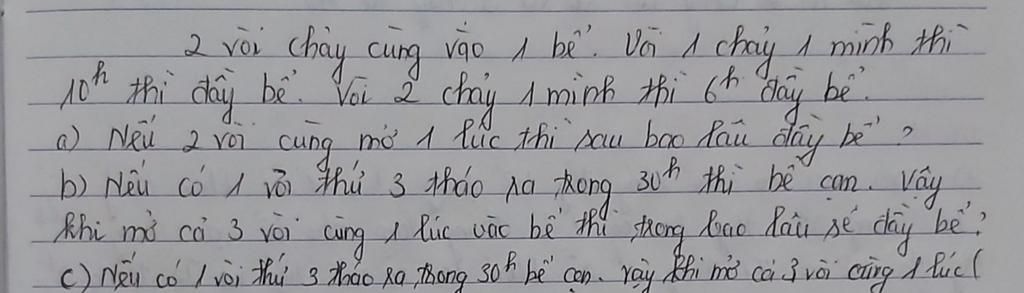 2 vòi chảy cùng vào 1 bể. Vòi 1 chảy 1 mình thì
10h thì đầy bể. Vòi 2 chảy 1 mình thì 6h đầy bể.
a) Nếu 2 vòi cùng mở 1 lúc thì sau bao lâu đầy bể?
b) Nếu có 1 vòi thứ 3 tháo ra trong 30h thì bể cạn. Vậy
khi mở cả 3 vòi cùng 1 lúc vào bể thì trong bao lâu sẽ đầy bể?
c) Nếu có 1 vòi thứ 3 tháo ra trong 30h bể cạn. Vậy khi mở cả 3 vòi cùng 1 lúc (